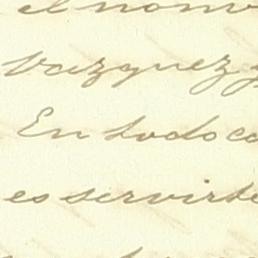 el nom
Vazquez y
En todo ca
es servirte